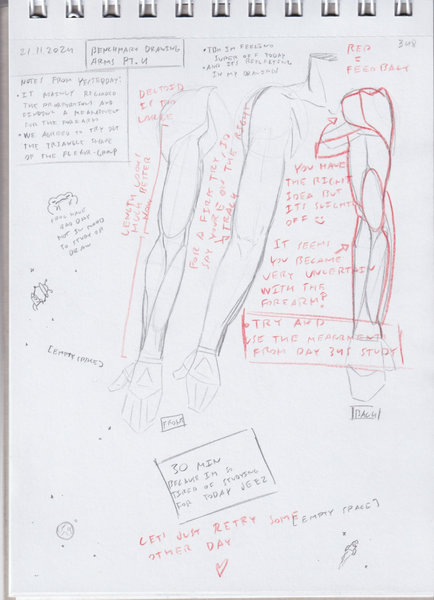 21.11.2024
BENCHMARK DRAWING
ARMS PT. 4
• TBH IM FEELING
SUPER OFF TODAY
- AND IT'S REFLECTING
IN MY DRAWING
RED
= FEEDBACK
348
NOTES FROM YESTERDAY:
• IT MAINLY REGARDED
THE PROPORTIONS AND
FINDING A MEASUREMENT
FOR THE FOREARM
• WE AGREED TO TRY OUT
THE TRIANGLE SHAPE
OF THE FLEXOR-GROUP
DELTOID
IS TOO
LARGE
LENGTH LOOKS
MUCH BETTER
FOR A FIRST TRY ID
SAY YOU'RE ON THE RIGHT
TRACK
YOU HAVE
THE RIGHT
IDEA BUT
ITS SLIGHTLY
OFF
IT SEEMS
YOU BECAME
VERY UNCERTAIN
WITH THE
FOREARM?
• TRY AND
USE THE MEASURMENT
FROM DAY 345 STUDY
YOU HAVE
BAD DAY
NOT IN MOOD
TO STUDY OR
DRAW
[EMPTY SPACE]
FRONT
BACK
30 MIN
BECAUSE IM SO
TIRED OF STUDYING
FOR TODAY JEEZ
[EMPTY SPACE]
LET'S JUST RETRY SOME
OTHER DAY